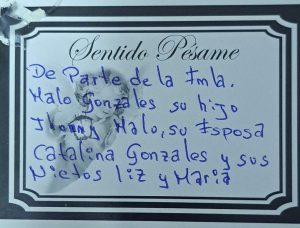 Sentido Pésame
De Parte de la Fmla.
Malo Gonzales su hijo
Jhonny Malo, su Esposa
Catalina Gonzales y sus
Nietos Liz y María